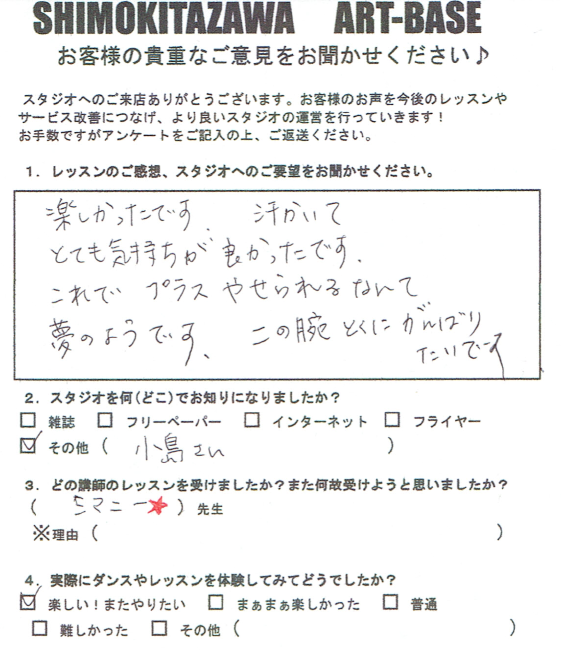 SHIMOKITAZAWA ART-BASE
お客様の貴重なご意見をお聞かせください♪
スタジオへのご来店ありがとうございます。お客様のお声を今後のレッスンや
サービス改善につなげ、より良いスタジオの運営を行っていきます！
お手数ですがアンケートをご記入の上、ご返送ください。
１．レッスンのご感想、スタジオへのご要望をお聞かせください。
楽しかったです、 汗かいて
とても気持ちが良かったです。
これで プラス やせられるなんて
夢のようです、 この腕 とくに がんばり
たいです
２．スタジオを何(どこ)でお知りになりましたか？
□ 雑誌 □ フリーペーパー □ インターネット □ フライヤー
☑ その他 ( 小島さん )
３．どの講師のレッスンを受けましたか？また何故受けようと思いましたか？
( ミマニー★ ) 先生
※理由 ( )
４．実際にダンスやレッスンを体験してみてどうでしたか？
☑ 楽しい！またやりたい □ まぁまぁ楽しかった □ 普通
□ 難しかった □ その他 ( )